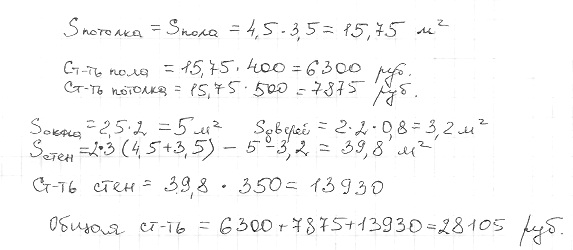 Sпотолка = Sпола = 4,5 · 3,5 = 15,75 м²
Ст-ть пола = 15,75 · 400 = 6300 руб.
Ст-ть потолка = 15,75 · 500 = 7875 руб.
Sокна = 2,5 · 2 = 5 м² Sдверей = 2 · 2 · 0,8 = 3,2 м²
Sстен = 2·3 (4,5+3,5) - 5 - 3,2 = 39,8 м²
Ст-ть стен = 39,8 · 350 = 13930
Общая ст-ть = 6300 + 7875 + 13930 = 28105 руб.